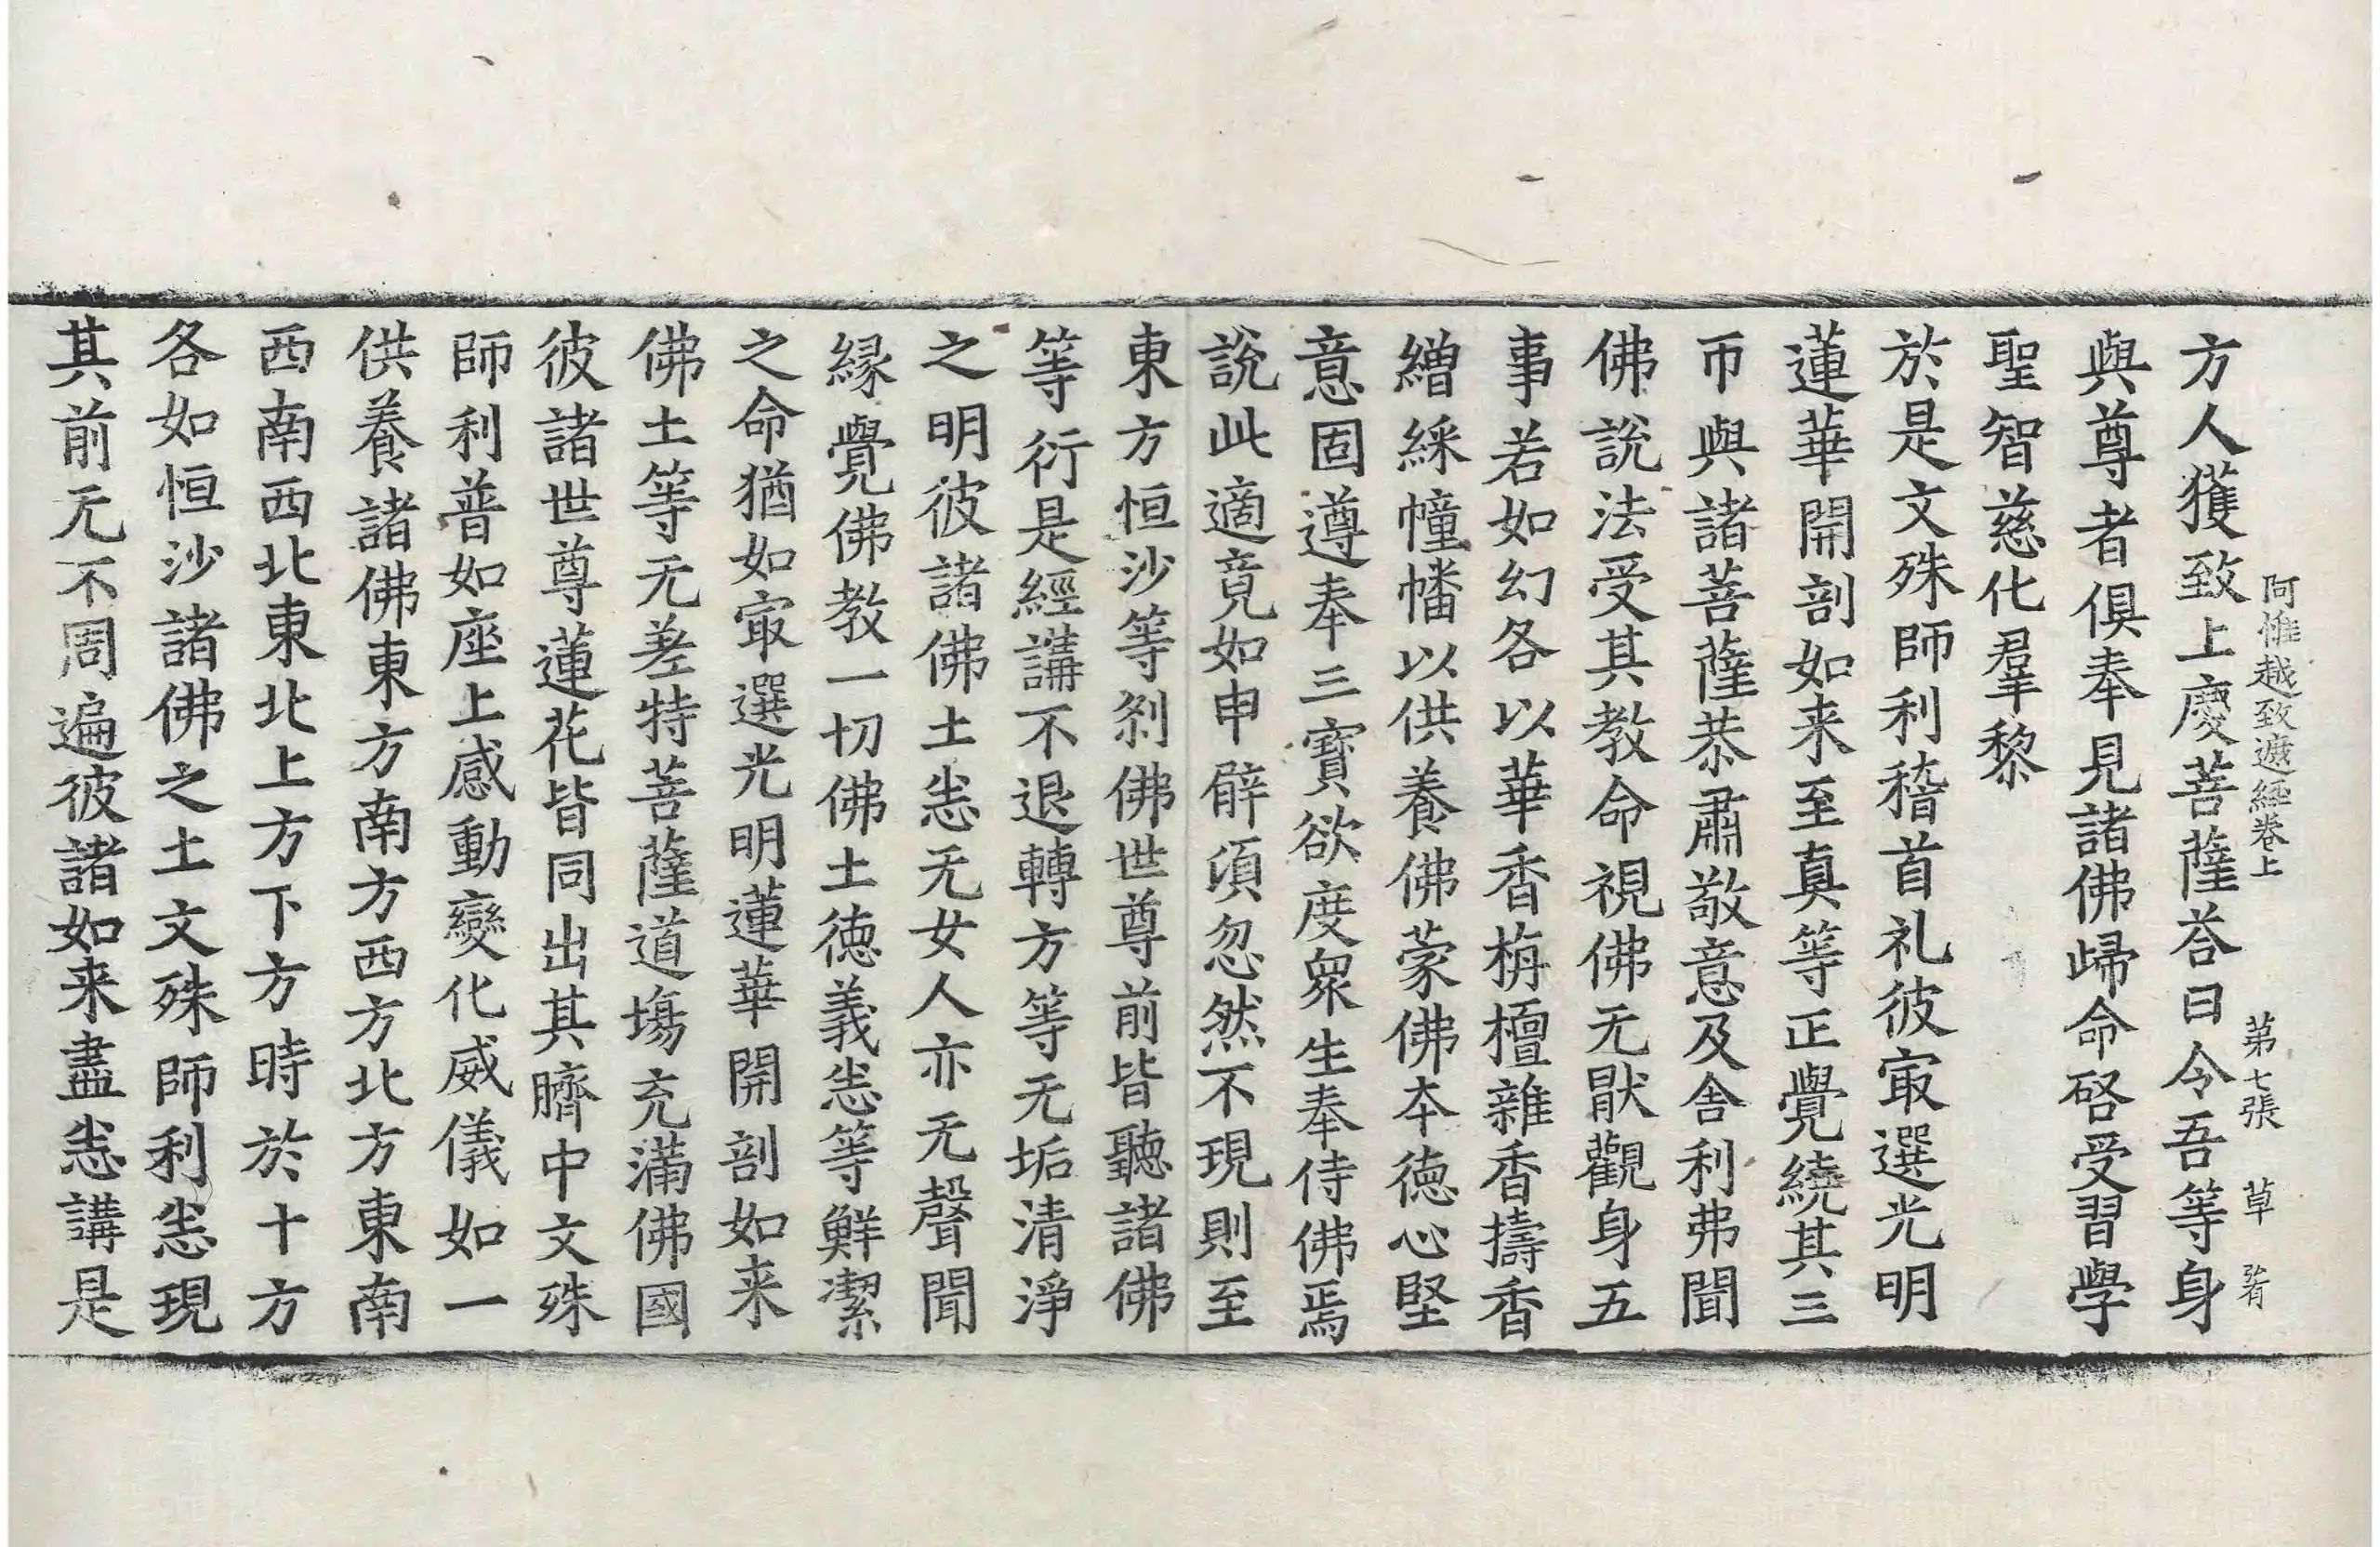 阿惟越致遮經卷上 第七張 草
方人獲致上慶菩薩荅曰今吾等身
與尊者俱奉見諸佛歸命啓受習學
聖智慈化羣黎
於是文殊師利稽首礼彼㝡選光明
蓮華開剖如来至真等正覺繞其三
帀與諸菩薩恭肅敬意及舍利弗聞
佛說法受其教命視佛无猒觀身五
事若如幻各以華香栴檀雜香擣香
繒綵幢幡以供養佛蒙佛夲德心堅
意固遵奉三寶欲度衆生奉侍佛焉
說此適竟如申臂須忽然不現則至
東方恒沙等剎佛世尊前皆聽諸佛
等衍是經講不退轉方等无垢清淨
之明彼諸佛土悉无女人亦无聲聞
緣覺佛教一切佛土德義悉等鮮潔
之命猶如㝡選光明蓮華開剖如来
佛土等无差特菩薩道場充滿佛國
彼諸世尊蓮花皆同出其臍中文殊
師利普如座上感動變化威儀如一
供養諸佛東方南方西方北方東南
西南西北東北上方下方時於十方
各如恒沙諸佛之土文殊師利悉現
其前无不周遍彼諸如来盡悉講是